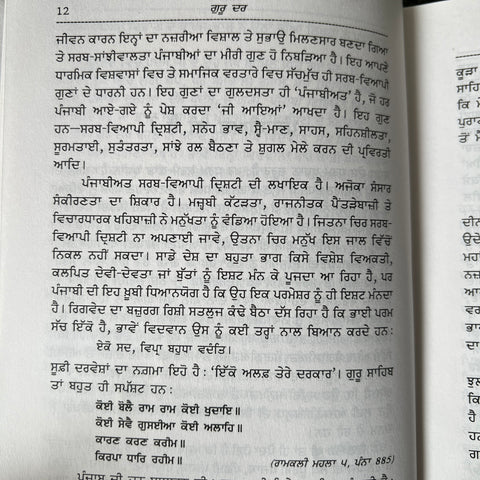 12 ਗੁਰੂ ਦਰ
ਜੀਵਨ ਕਾਰਨ ਇਨ੍ਹਾਂ ਦਾ ਨਜ਼ਰੀਆ ਵਿਸ਼ਾਲ ਤੇ ਸੁਭਾਉ ਮਿਲਣਸਾਰ ਬਣਦਾ ਗਿਆ
ਤੇ ਸਰਬ-ਸਾਂਝੀਵਾਲਤਾ ਪੰਜਾਬੀਆਂ ਦਾ ਮੀਰੀ ਗੁਣ ਹੋ ਨਿਬੜਿਆ ਹੈ। ਇਹ ਆਪਣੇ
ਧਾਰਮਿਕ ਵਿਸ਼ਵਾਸਾਂ ਵਿਚ ਤੇ ਸਮਾਜਿਕ ਵਰਤਾਰੇ ਵਿਚ ਸੱਚਮੁੱਚ ਹੀ ਸਰਬ-ਵਿਆਪੀ
ਗੁਣਾਂ ਦੇ ਧਾਰਨੀ ਹਨ। ਇਹ ਗੁਣਾਂ ਦਾ ਗੁਲਦਸਤਾ ਹੀ 'ਪੰਜਾਬੀਅਤ' ਹੈ, ਜੋ ਹਰ
ਪੰਜਾਬੀ ਆਏ-ਗਏ ਨੂੰ ਪੇਸ਼ ਕਰਦਾ 'ਜੀ ਆਇਆਂ' ਆਖਦਾ ਹੈ। ਇਹ ਗੁਣ
ਹਨ—ਸਰਬ-ਵਿਆਪੀ ਦ੍ਰਿਸ਼ਟੀ, ਸਨੇਹ ਭਾਵ, ਸ੍ਵੈ-ਮਾਣ, ਸਾਹਸ, ਸਹਿਨਸ਼ੀਲਤਾ,
ਸੂਰਮਤਾਈ, ਸੁਤੰਤਰਤਾ, ਸਾਂਝੇ ਰਲ ਬੈਠਣਾ ਤੇ ਸ਼ੁਗਲ ਮੇਲੇ ਕਰਨ ਦੀ ਪ੍ਰਵਿਰਤੀ
ਆਦਿ।
ਪੰਜਾਬੀਅਤ ਸਰਬ-ਵਿਆਪੀ ਦ੍ਰਿਸ਼ਟੀ ਦੀ ਲਖਾਇਕ ਹੈ। ਅਜੋਕਾ ਸੰਸਾਰ
ਸੰਕੀਰਣਤਾ ਦਾ ਸ਼ਿਕਾਰ ਹੈ। ਮਜ਼੍ਹਬੀ ਕੱਟੜਤਾ, ਰਾਜਨੀਤਕ ਪੈਂਤੜੇਬਾਜ਼ੀ ਤੇ
ਵਿਚਾਰਧਾਰਕ ਖਹਿਬਾਜ਼ੀ ਨੇ ਮਨੁੱਖਤਾ ਨੂੰ ਵੰਡਿਆ ਹੋਇਆ ਹੈ। ਜਿਤਨਾ ਚਿਰ ਸਰਬ-
ਵਿਆਪੀ ਦ੍ਰਿਸ਼ਟੀ ਨਾ ਅਪਣਾਈ ਜਾਵੇ, ਉਤਨਾ ਚਿਰ ਮਨੁੱਖ ਇਸ ਜਾਲ ਵਿੱਚੋਂ
ਨਿਕਲ ਨਹੀਂ ਸਕਦਾ। ਸਾਡੇ ਦੇਸ਼ ਦਾ ਬਹੁਤਾ ਭਾਗ ਕਿਸੇ ਵਿਸ਼ੇਸ਼ ਵਿਅਕਤੀ,
ਕਲਪਿਤ ਦੇਵੀ-ਦੇਵਤਾ ਜਾਂ ਬੁੱਤਾਂ ਨੂੰ ਇਸ਼ਟ ਮੰਨ ਕੇ ਪੂਜਦਾ ਆ ਰਿਹਾ ਹੈ, ਪਰ
ਪੰਜਾਬੀ ਦੀ ਇਹ ਖ਼ੂਬੀ ਧਿਆਨਯੋਗ ਹੈ ਕਿ ਉਹ ਇਕ ਪਰਮੇਸ਼ਰ ਨੂੰ ਹੀ ਇਸ਼ਟ ਮੰਨਦਾ
ਹੈ। ਰਿਗਵੇਦ ਦਾ ਬਜ਼ੁਰਗ ਰਿਸ਼ੀ ਸਤਲੁਜ ਕੰਢੇ ਬੈਠਾ ਦੱਸ ਰਿਹਾ ਹੈ ਕਿ ਭਾਈ ਪਰਮ
ਸੱਚ ਇੱਕੋ ਹੈ, ਭਾਵੇਂ ਵਿਦਵਾਨ ਉਸ ਨੂੰ ਕਈ ਤਰ੍ਹਾਂ ਨਾਲ ਬਿਆਨ ਕਰਦੇ ਹਨ :
ਏਕੋ ਸਦ, ਵਿਪ੍ਰਾ ਬਹੁਧਾ ਵਦੰਤਿ।
ਸੂਫ਼ੀ ਦਰਵੇਸ਼ਾਂ ਦਾ ਨਗ਼ਮਾ ਇਹੋ ਹੈ : 'ਇੱਕੋ ਅਲਫ਼ ਤੇਰੇ ਦਰਕਾਰ'। ਗੁਰੂ ਸਾਹਿਬ
ਤਾਂ ਬਹੁਤ ਹੀ ਸਪੱਸ਼ਟ ਹਨ :
ਕੋਈ ਬੋਲੈ ਰਾਮ ਰਾਮ ਕੋਈ ਖੁਦਾਇ॥
ਕੋਈ ਸੇਵੈ ਗੁਸਈਆ ਕੋਈ ਅਲਾਹਿ॥
ਕਾਰਣ ਕਰਣ ਕਰੀਮ॥
ਕਿਰਪਾ ਧਾਰਿ ਰਹੀਮ॥
(ਰਾਮਕਲੀ ਮਹਲਾ ੫, ਪੰਨਾ 885)